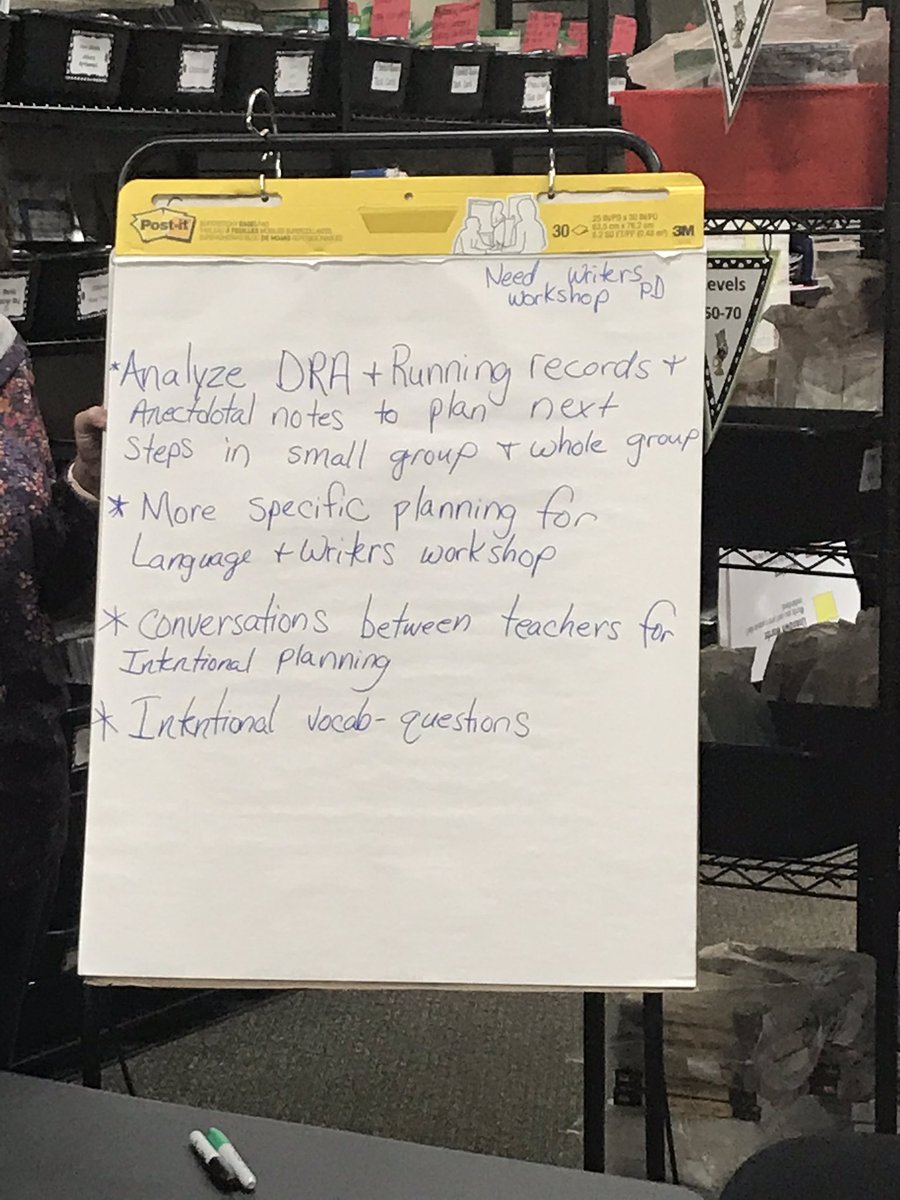 Post-it
30
25 IN/PO x 30 IN/PO
63,5 cm x 76,2 cm
3M
Need writers
workshop PD
*Analyze DRA + Running records +
Anectdotal notes to plan next
steps in small group + whole group
* More specific planning for
Language + Writers workshop
* Conversations between teachers for
Intentional planning
* Intentional vocab- questions
evels
60-70
Unknown Words